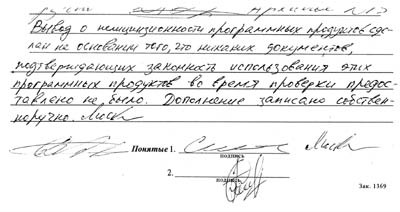 Вывод о нелицинзионности программных продуктов сде-
лан на основании того, что никаких документов,
подтверждающих законность использования этих
программных продуктов во время проверки предос-
тавлено не было. Дополнение записано собствен-
норучно.
Понятые 1.
подпись
2.
подпись
Зак. 1369